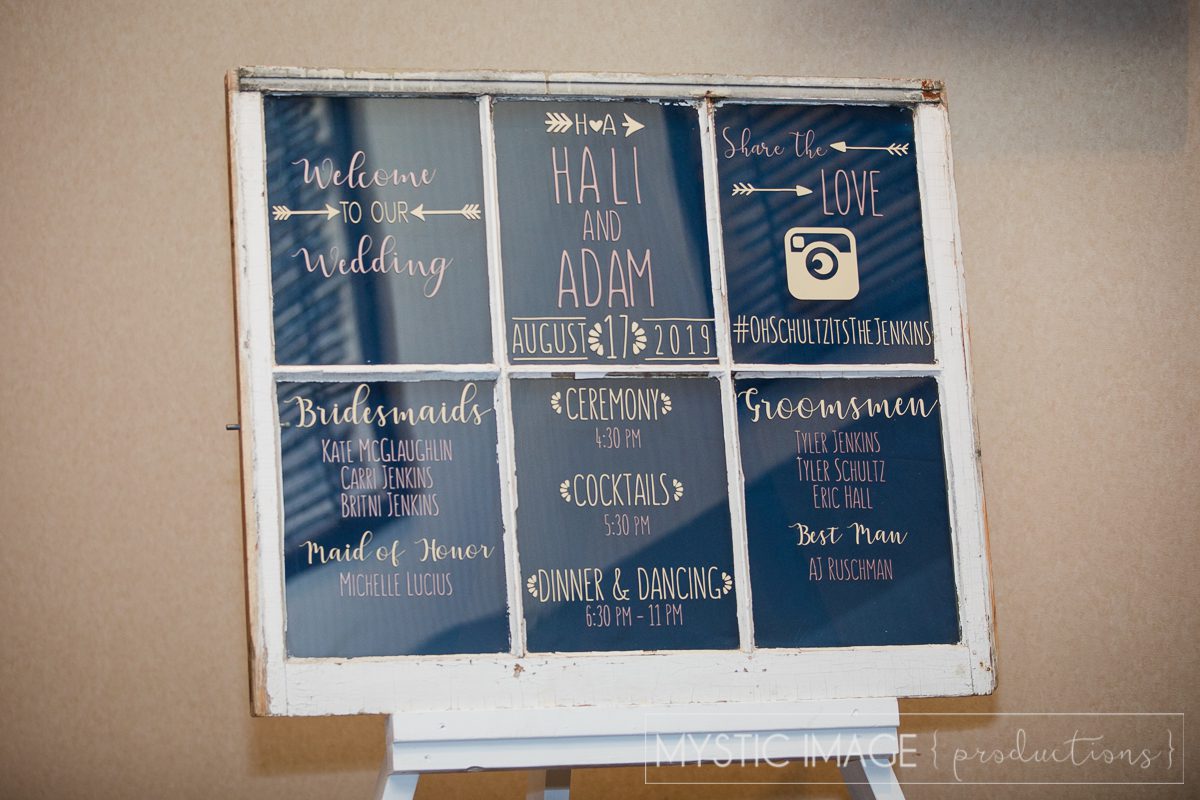 Welcome
TO OUR
Wedding
H♥A
HALI
AND
ADAM
AUGUST 17 2019
Share the
LOVE
#OHSCHULTZITSTHEJENKINS
Bridesmaids
KATE MCGLAUGHLIN
CARRI JENKINS
BRITNI JENKINS
Maid of Honor
MICHELLE LUCIUS
CEREMONY
4:30 PM
COCKTAILS
5:30 PM
DINNER & DANCING
6:30 PM - 11 PM
Groomsmen
TYLER JENKINS
TYLER SCHULTZ
ERIC HALL
Best Man
AJ RUSCHMAN
MYSTIC IMAGE {productions}